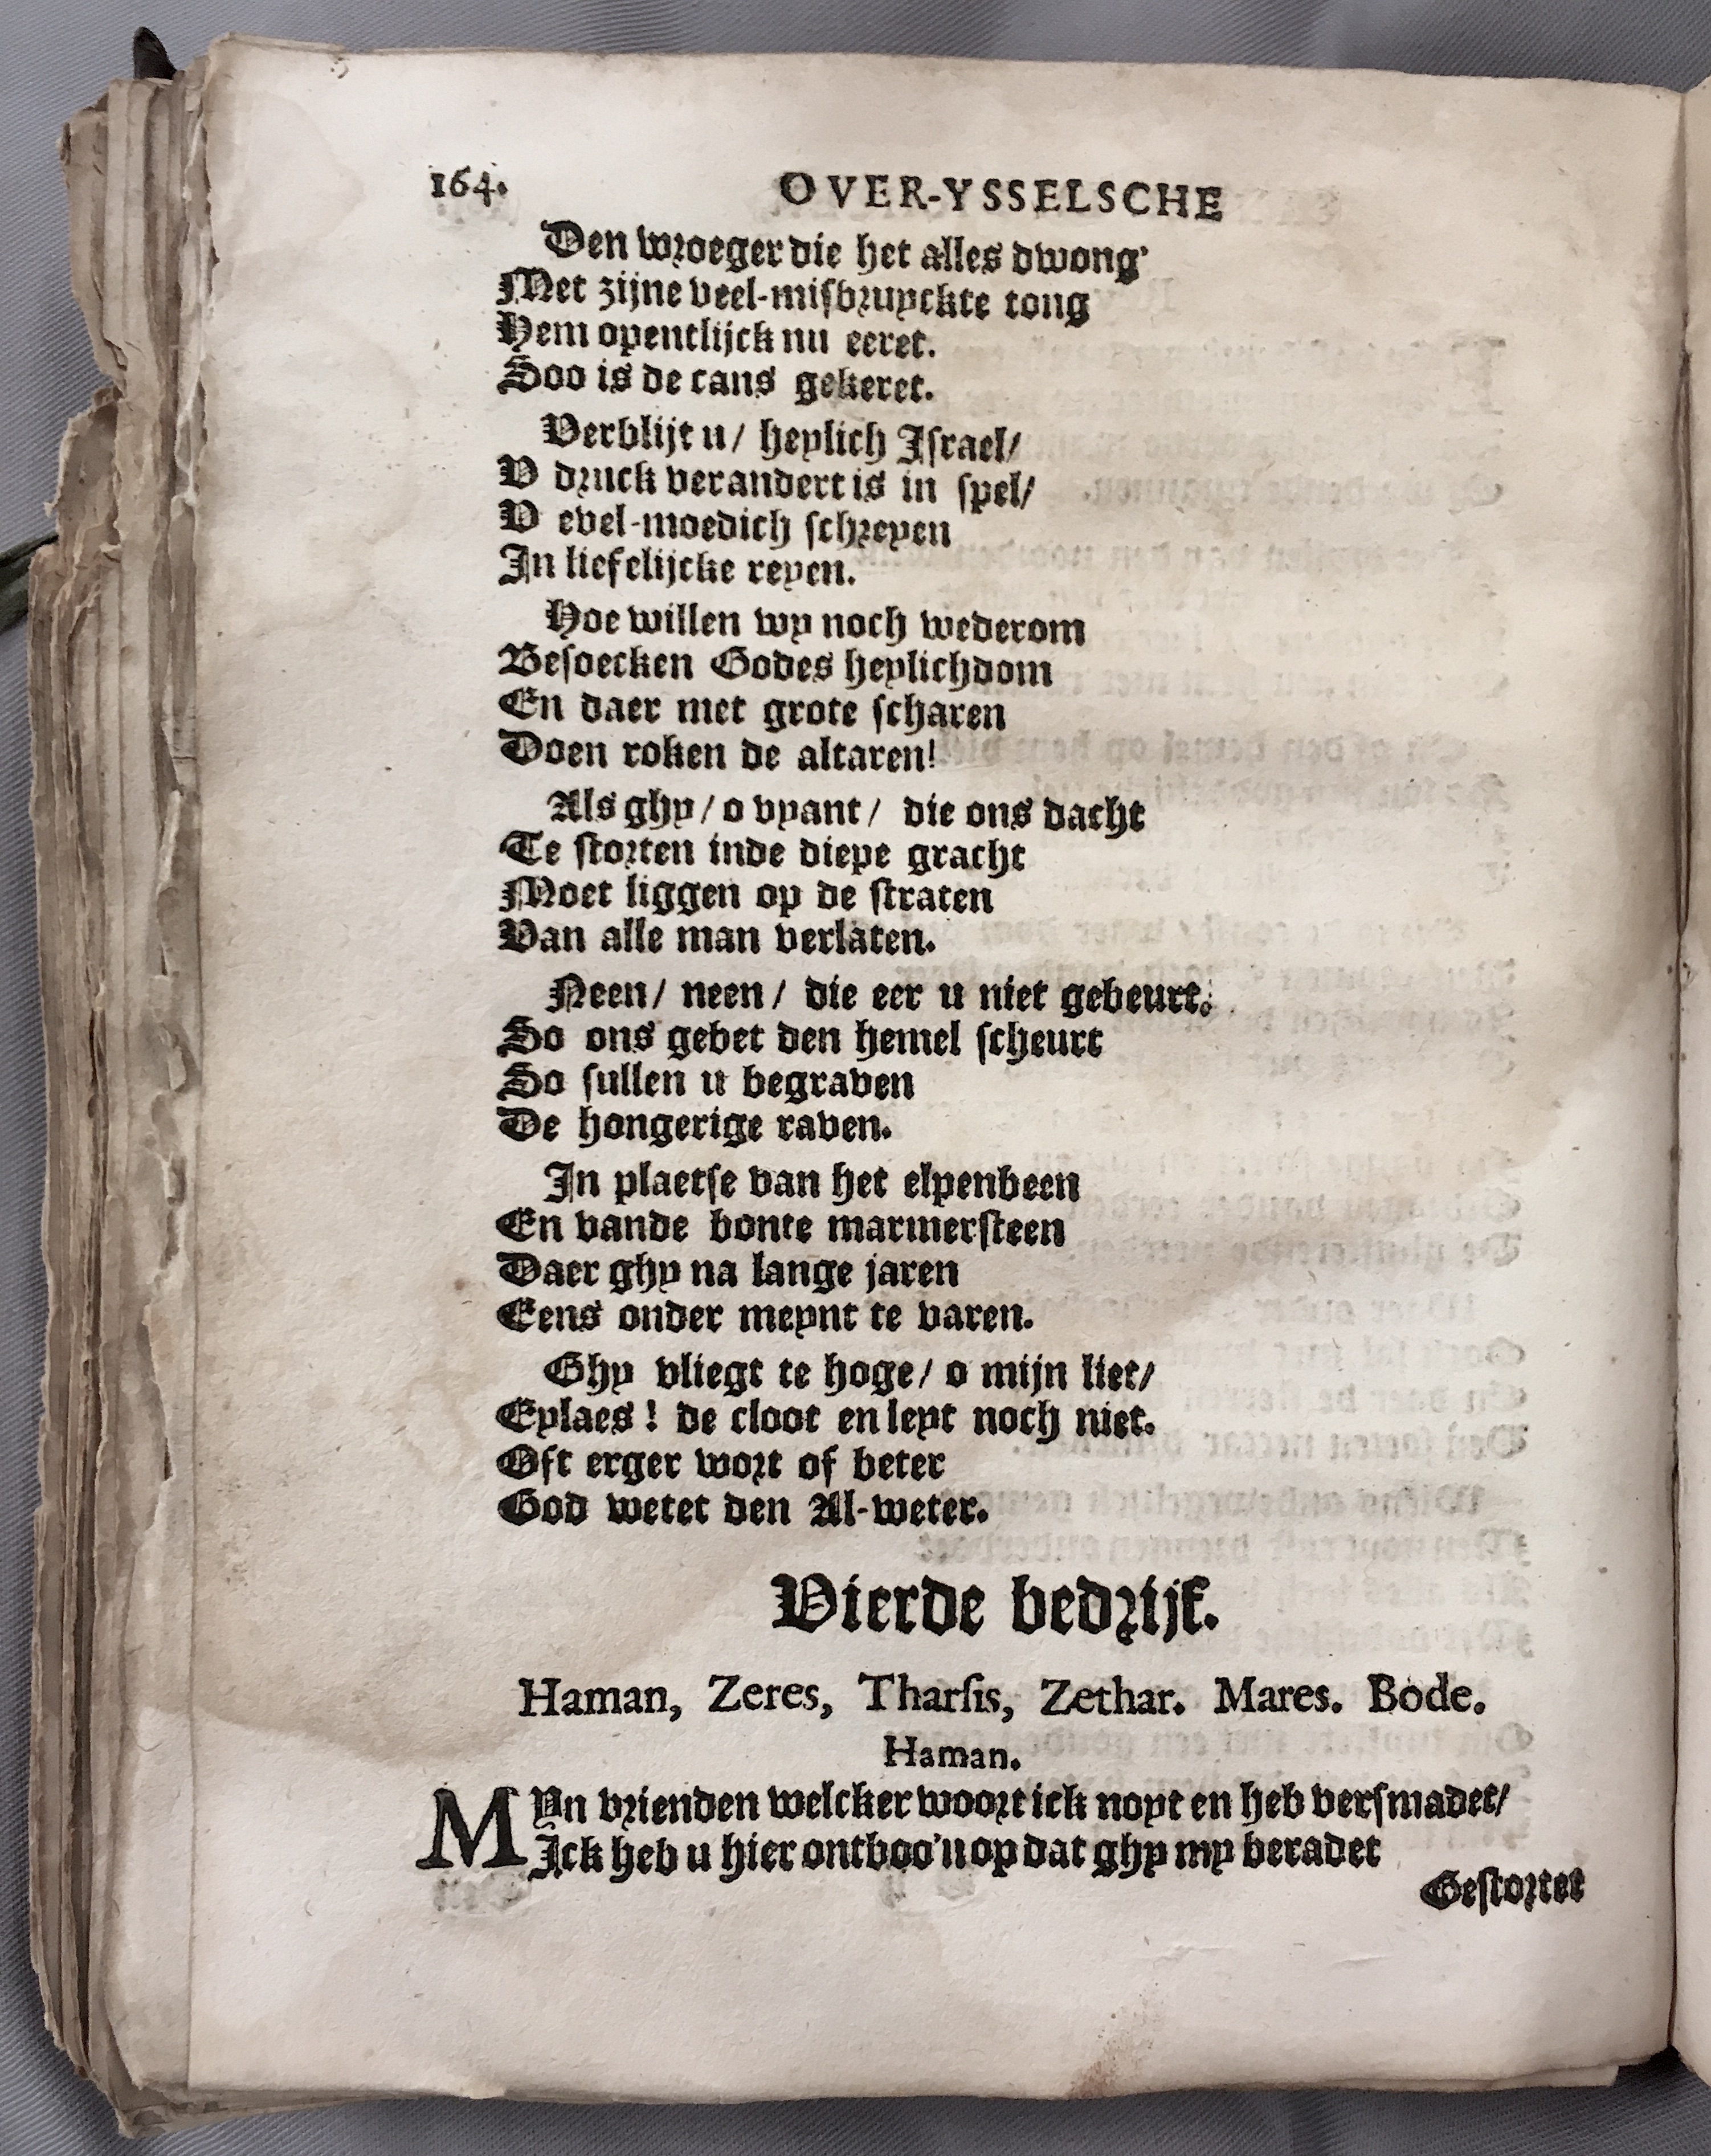 164. OVER-YSSELSCHE
Den wroeger die het alles dwong'
Met zijne veel-misbruyckte tong
Hem opentlijck nu eeret.
Soo is de cans gekeret.
Verblijt u/ heylich Israel/
V druck verandert is in spel/
V evel-moedich schreyen
In liefelijcke reyen.
Hoe willen wy noch wederom
Besoecken Godes heylichdom
En daer met grote scharen
Doen roken de altaren!
Als ghy/ o vyant/ die ons dacht
Te storten inde diepe gracht
Moet liggen op de straten
Van alle man verlaten.
Neen/ neen/ die eer u niet gebeurt.
So ons gebet den hemel scheurt
So sullen u begraven
De hongerige raven.
In plaetse van het elpenbeen
En vande bonte marmersteen
Daer ghy na lange jaren
Eens onder meynt te varen.
Ghy vliegt te hoge/ o mijn liet/
Eylaes! de cloot en leyt noch niet.
Oft erger wort of beter
God wetet den Al-weter.
Vierde bedrijf.
Haman, Zeres, Tharsis, Zethar. Mares. Bode.
Haman.
MYn vrienden welcker woort ick noyt en heb versmadet/
Ick heb u hier ontboo'n op dat ghy my beradet
Gestortet